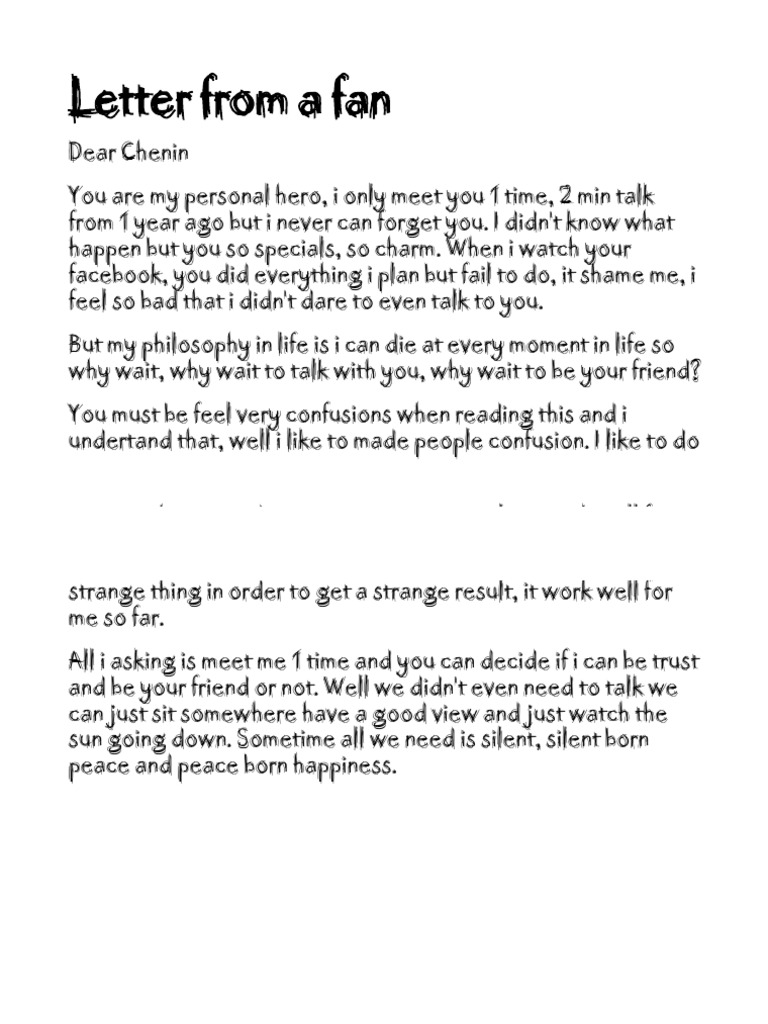 Letter from a fan
Dear Chenin
You are my personal hero, i only meet you 1 time, 2 min talk
from 1 year ago but i never can forget you. I didn't know what
happen but you so specials, so charm. When i watch your
facebook, you did everything i plan but fail to do, it shame me, i
feel so bad that i didn't dare to even talk to you.
But my philosophy in life is i can die at every moment in life so
why wait, why wait to talk with you, why wait to be your friend?
You must be feel very confusions when reading this and i
undertand that, well i like to made people confusion. I like to do
strange thing in order to get a strange result, it work well for
me so far.
All i asking is meet me 1 time and you can decide if i can be trust
and be your friend or not. Well we didn't even need to talk we
can just sit somewhere have a good view and just watch the
sun going down. Sometime all we need is silent, silent born
peace and peace born happiness.